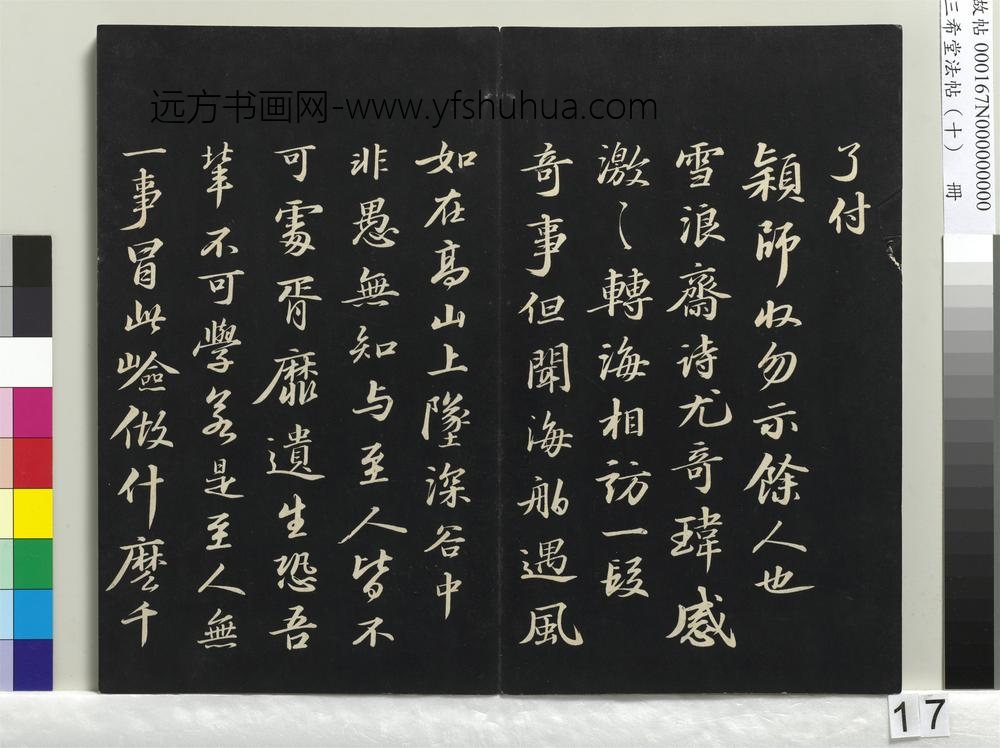 了付
穎師收勿示餘人也
雪浪齋诗尤奇瑋感
激〻轉海相訪一段
奇事但聞海舶遇風
如在高山上墜深谷中
非愚無知与至人皆不
可處胥靡遺生恐吾
輩不可學若是至人無
一事冒此嶮做什麽千
远方书画网-www.yfshuhua.com
故帖 000167N000000000
三希堂法帖（十） 册
17